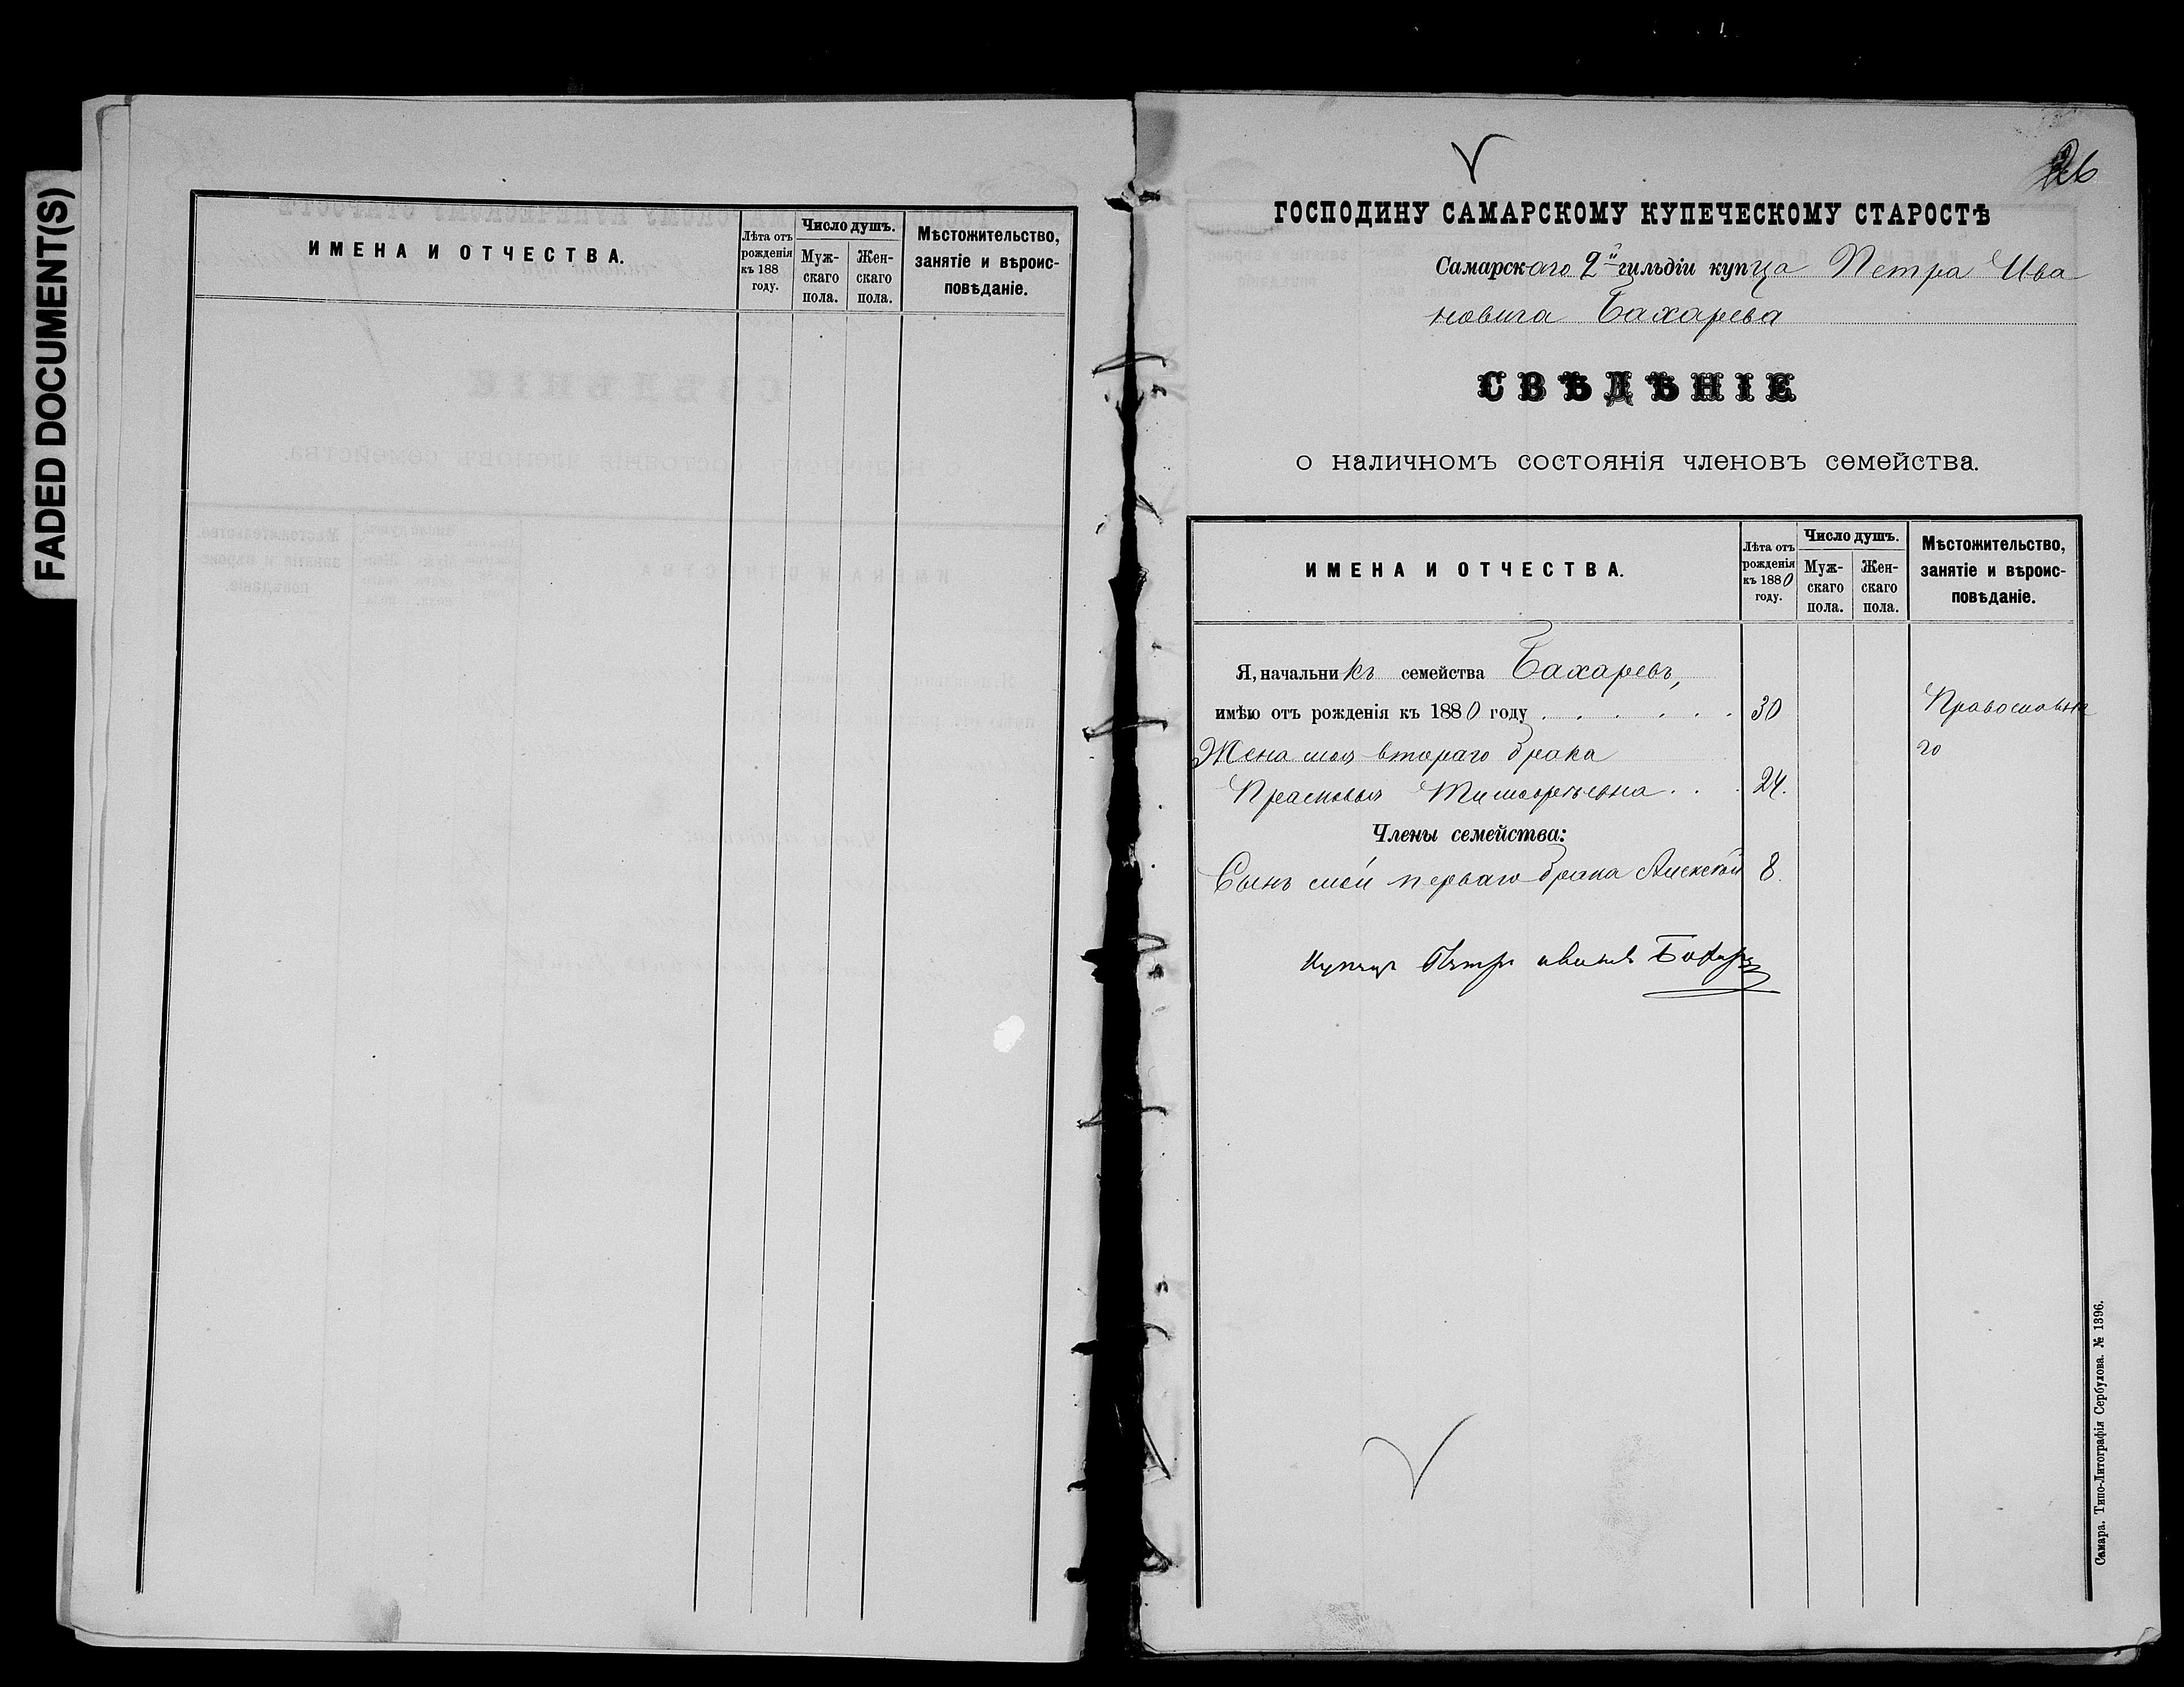 FADED DOCUMENT(S)
ИМЕНА И ОТЧЕСТВА.
Лѣта отъ рожденія къ 188 году.
Число душъ.
Мужскаго пола.
Женскаго пола.
Мѣстожительство, занятіе и вѣроисповѣданіе.
26
ГОСПОДИНУ САМАРСКОМУ КУПЕЧЕСКОМУ СТАРОСТѢ
Самарскаго 2й гильдіи купца Петра Ива
новича Бахарева
СВѢДѢНІЕ
о наличномъ состоянія членовъ семейства.
ИМЕНА И ОТЧЕСТВА.
Лѣта отъ
рожденія
къ 1880
году.
Число душъ.
Муж-
скаго
пола.
Жен-
скаго
пола.
Мѣстожительство,
занятіе и вѣроис-
повѣданіе.
Я, начальникъ семейства Бахаревъ,
имѣю отъ рожденія къ 1880 году . . . . . . 30 Православна
Жена моя втораго брака го
Прасковья Тимофѣевна . . . 24.
Члены семейства:
Сынъ мой перваго брака Алексѣй 8.
Купецъ Петръ Ивановъ Бахаревъ
Самара. Типо-Литографія Сербулова. № 1396.